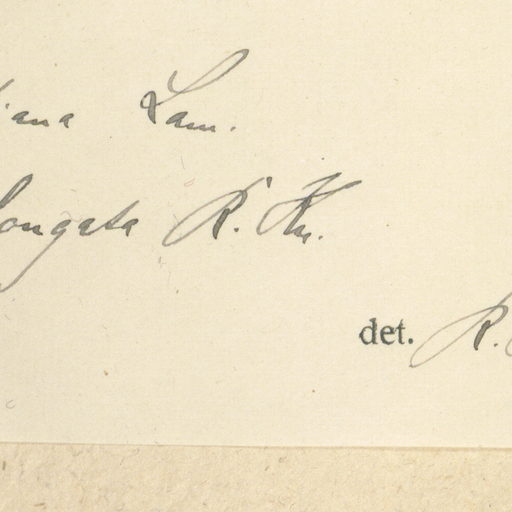 iana Lam.
longata R. Kn.
det. R.